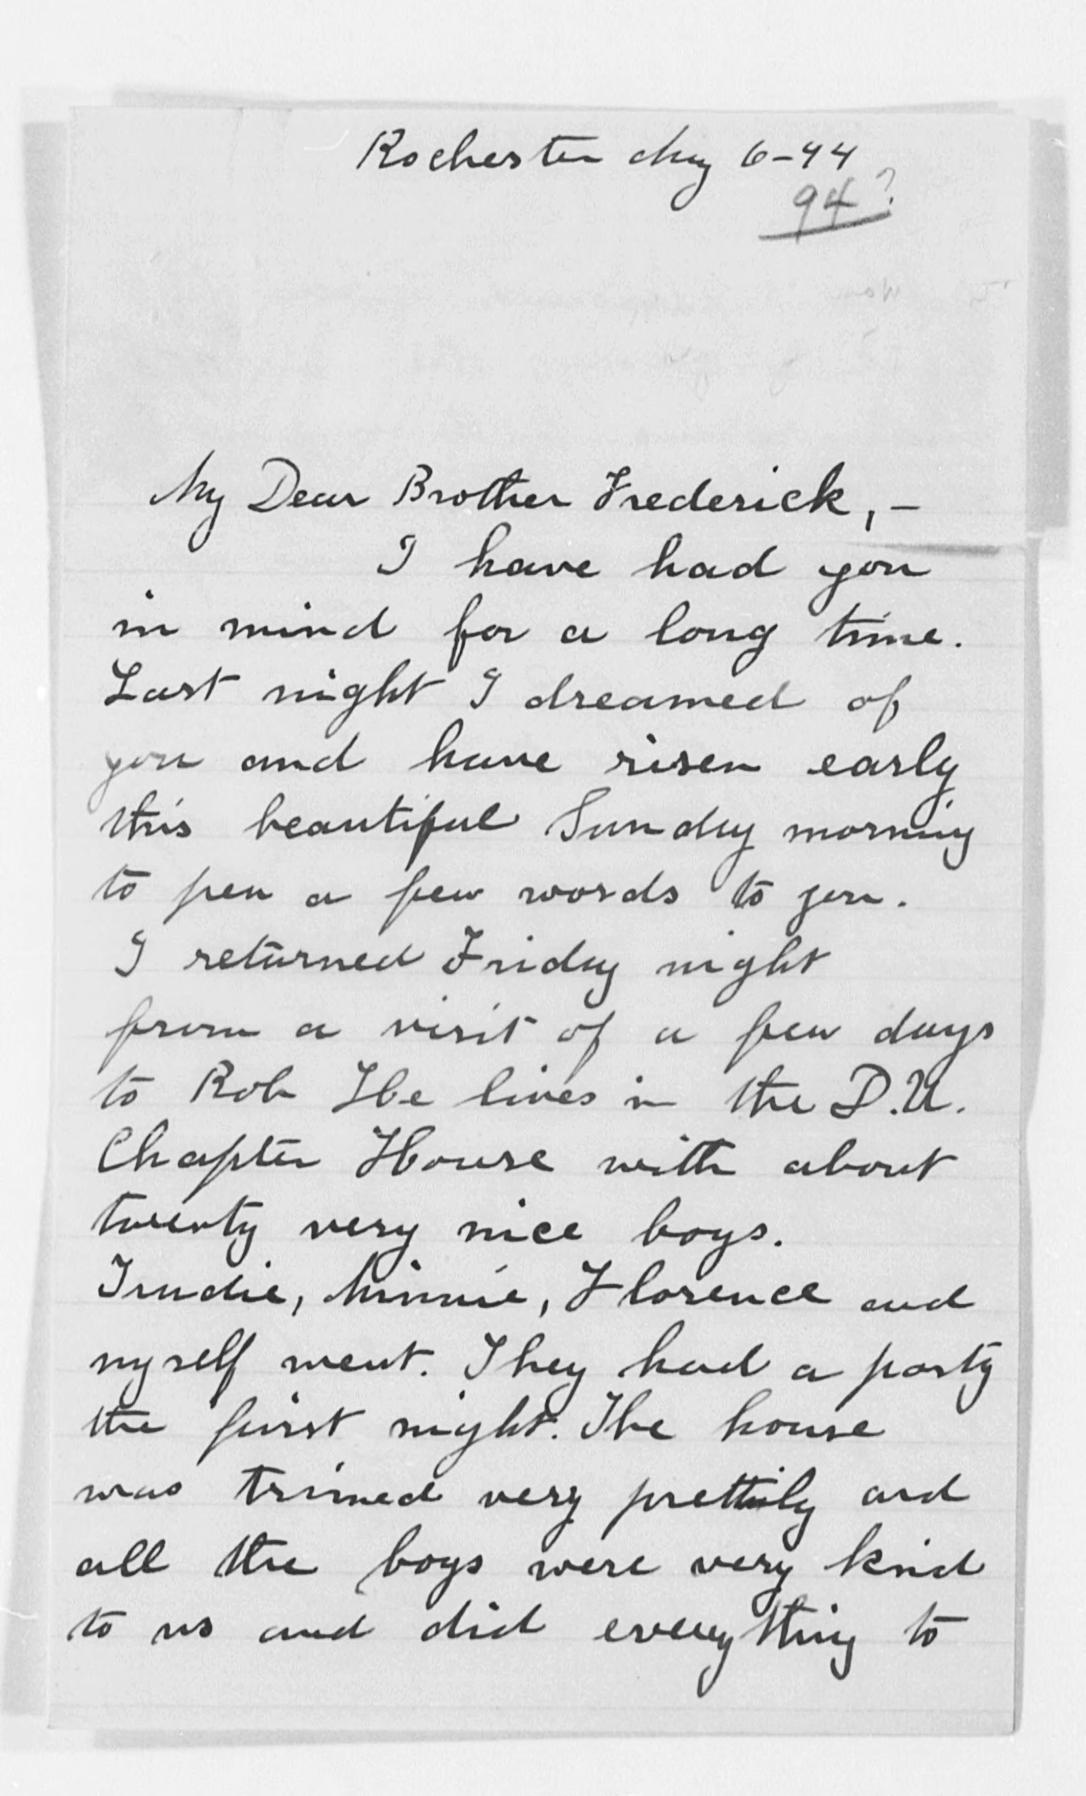 Rochester May 6-94
94?
My Dear Brother Frederick, -
I have had you
in mind for a long time.
Last night I dreamed of
you and have risen early
this beautiful Sunday morning
to pen a few words to you.
I returned Friday night
from a visit of a few days
to Rob He lives in the D.U.
Chapter House with about
twenty very nice boys.
Trudie, Minnie, Florence and
myself went. They had a party
the first night. The house
was trimed very prettily and
all the boys were very kind
to us and did everything to